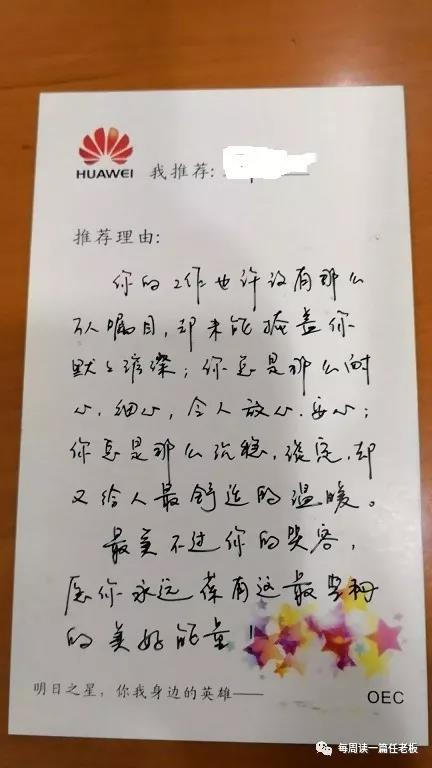 HUAWEI 我推荐:
推荐理由:
你的工作也许没有那么
引人瞩目,却未能掩盖你
默默璀璨;你总是那么耐
心、细心,令人放心、安心;
你总是那么沉稳、淡定,却
又给人最舒适的温暖。
最美不过你的笑容,
愿你永远葆有这最
的美好能量!
明日之星,你我身边的英雄——
OEC
每周读一篇任老板